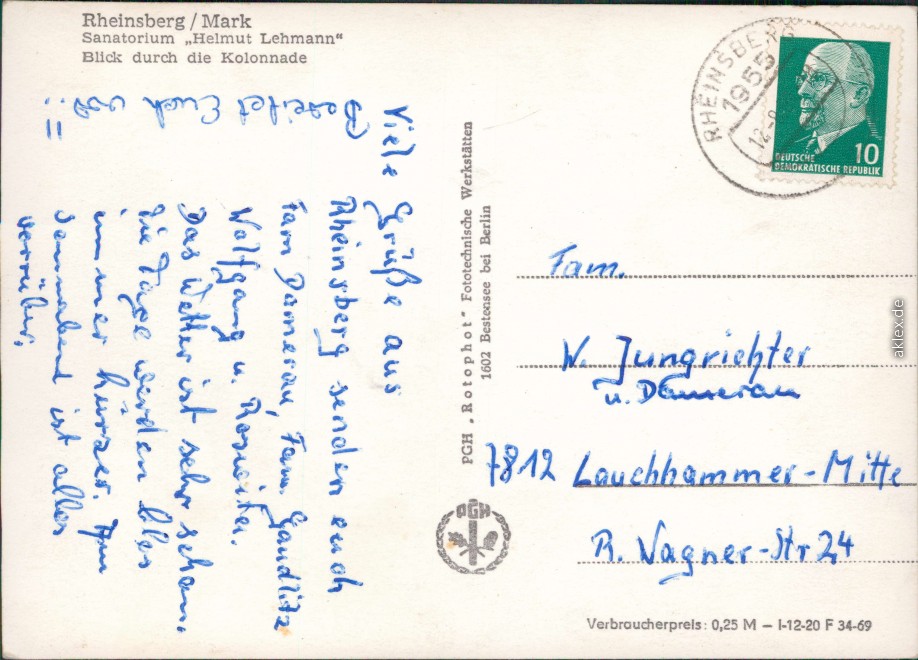 Rheinsberg / Mark
Sanatorium „Helmut Lehmann“
Blick durch die Kolonnade
Viele Grüße aus
Rheinsberg senden euch
Fam Damerau, Fam. Gaudlitz
Wolfgang u. Roswita.
Das Wetter ist sehr schön.
Die Tage werden
immer kürzer. Am
Sonnabend ist alles
vorüber.
Euch
PGH „Rotophot“ Fototechnische Werkstätten
1602 Bestensee bei Berlin
PGH
RHEINSBERG
1955
12-8
10
DEUTSCHE
DEMOKRATISCHE REPUBLIK
Fam.
W. Jungrichter
u. Damerau
7812 Lauchhammer-Mitte
R. Wagner-Str 24
Verbraucherpreis: 0,25 M – I-12-20 F 34-69
aklex.de